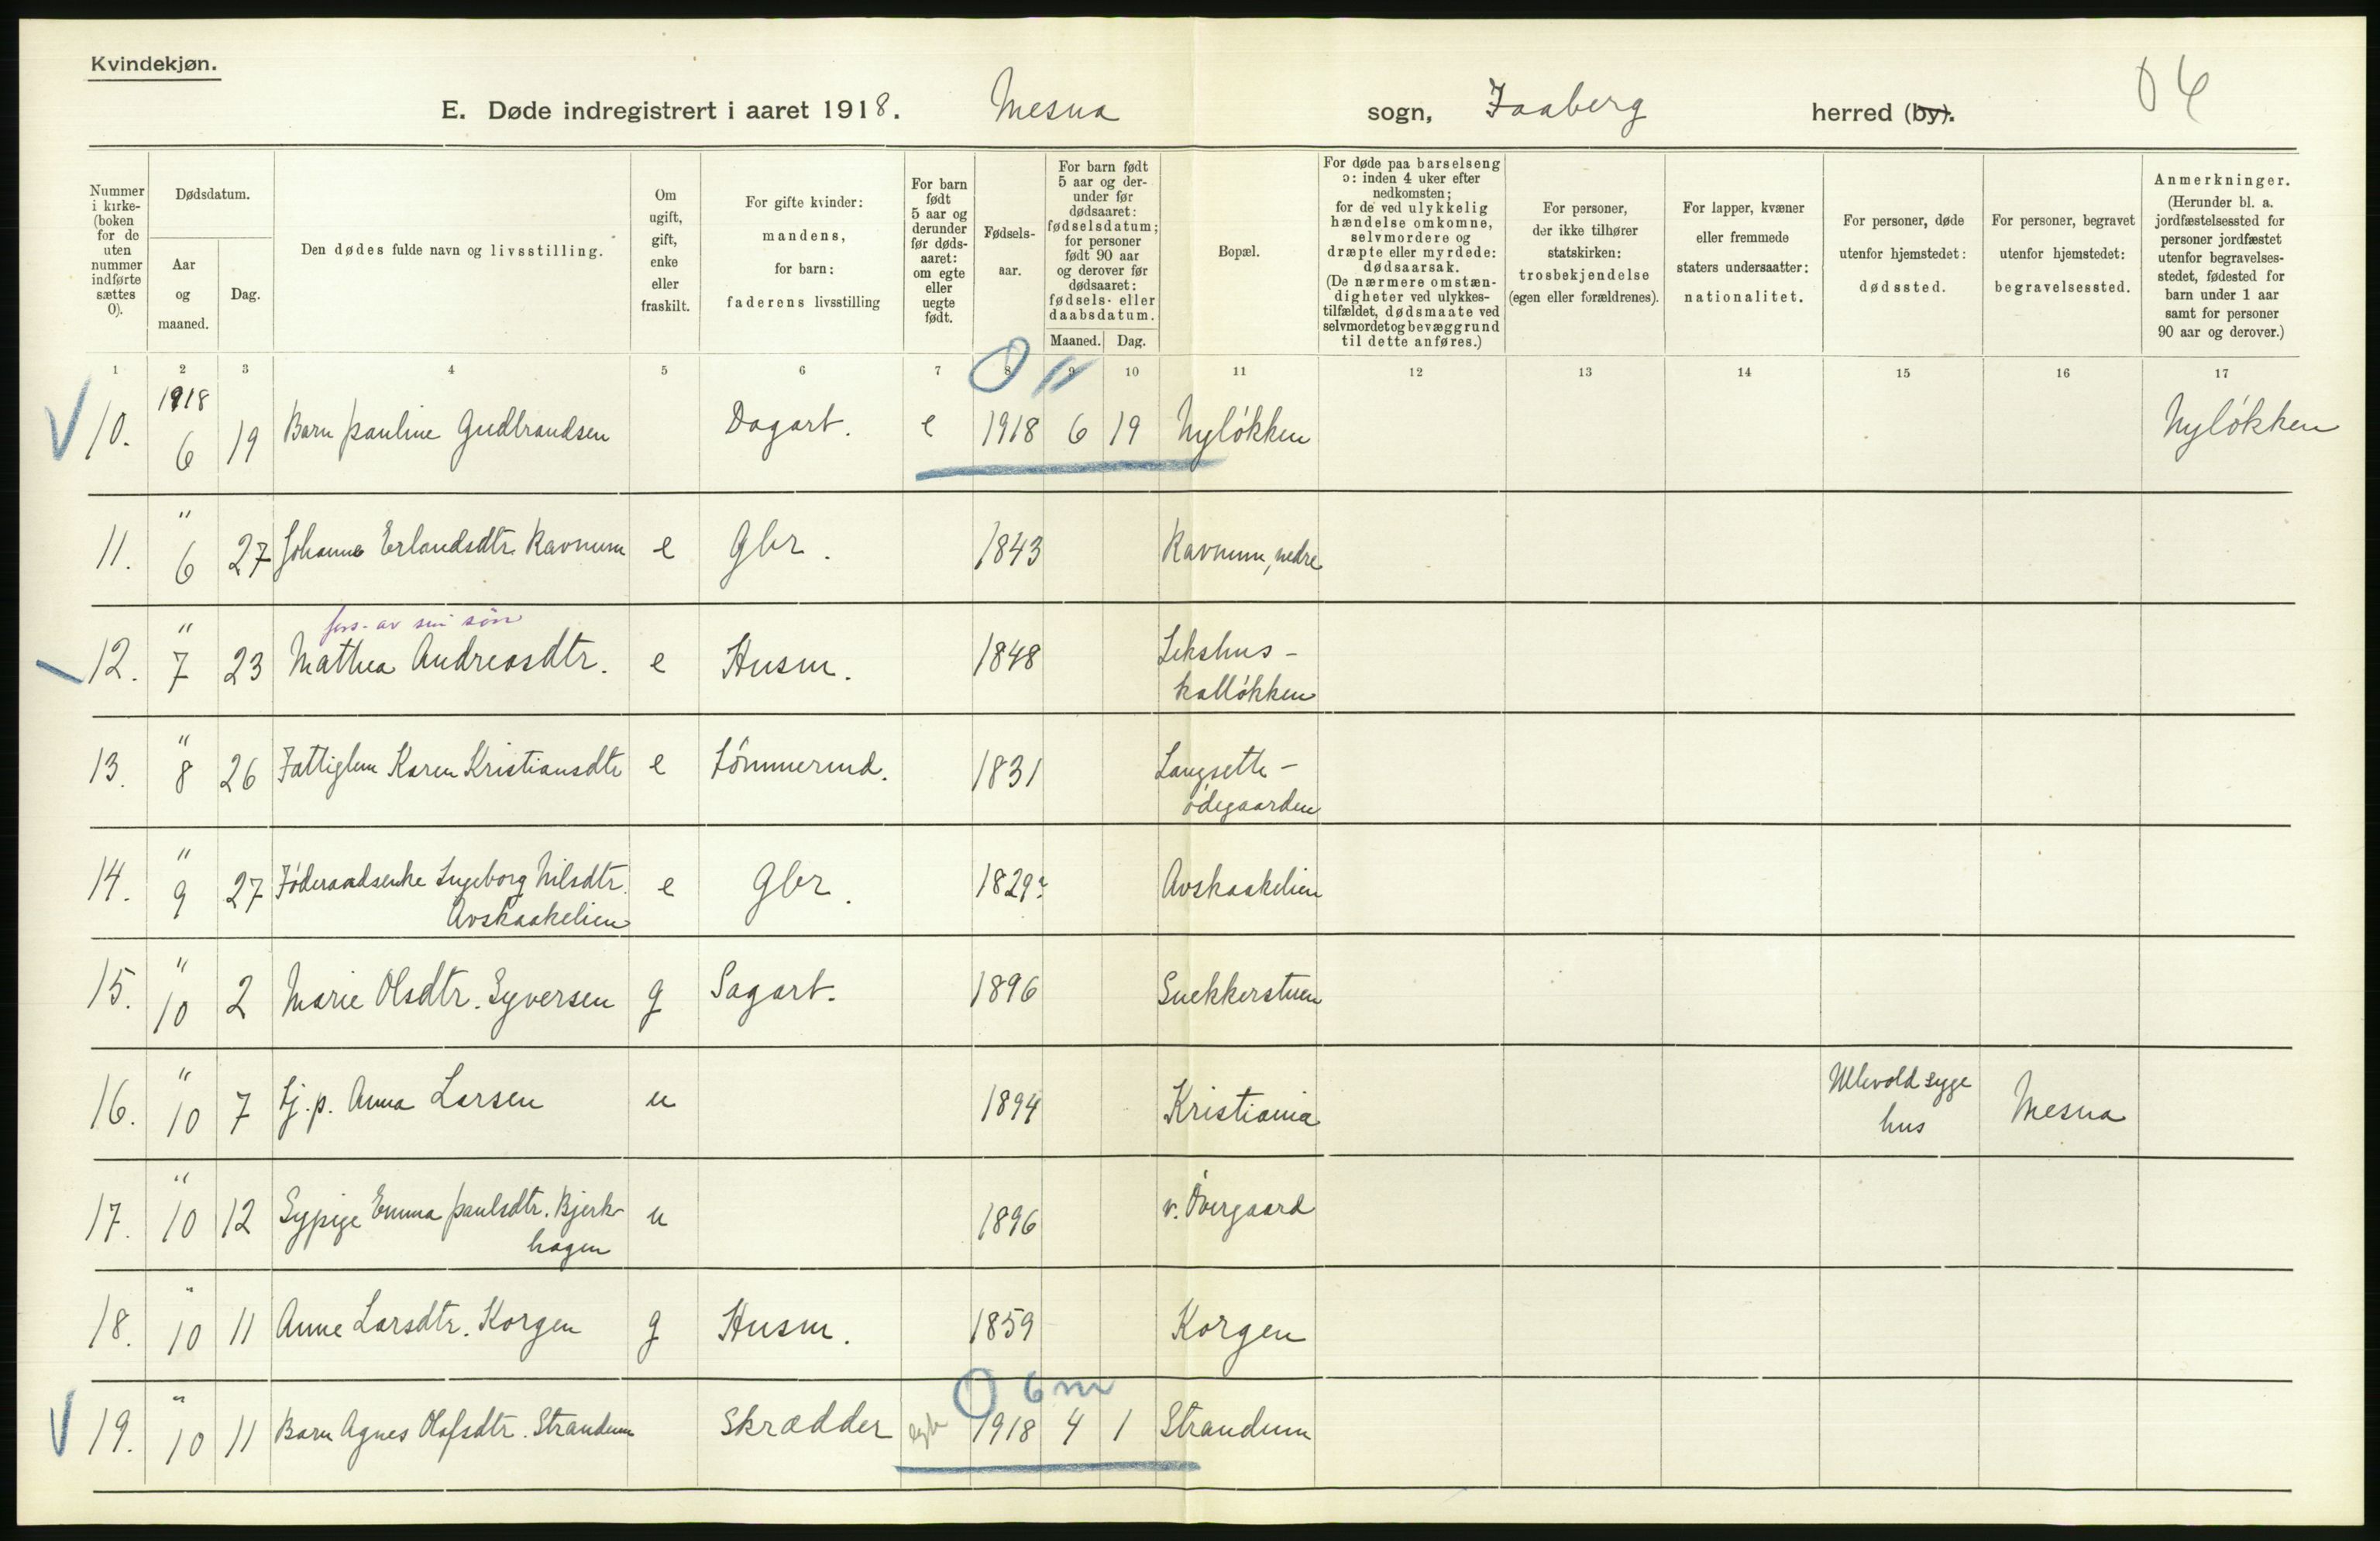 Kvindekjøn.
E. Døde indregistrert i aaret 1918. Mesna sogn, Faaberg herred (by).
Nummer i kirke- (boken for de uten nummer indførte sættes 0).
Dødsdatum.
Aar og maaned.
Dag.
Den dødes fulde navn og livsstilling.
Om ugift, gift, enke eller fraskilt.
For gifte kvinder: mandens, for barn: faderens livsstilling
For barn født 5 aar og derunder før døds- aaret: om egte eller uegte født.
Fødsels- aar.
For barn født 5 aar og der- under før dødsaaret: fødselsdatum; for personer født 90 aar og derover før dødsaaret: fødsels- eller daabsdatum.
Maaned. Dag.
Bopæl.
For døde paa barselseng ɔ: inden 4 uker efter nedkomsten; for de ved ulykkelig hændelse omkomne, selvmordere og dræpte eller myrdede: dødsaarsak. (De nærmere omstæn- digheter ved ulykkes- tilfældet, dødsmaate ved selvmordet og bevæggrund til dette anføres.)
For personer, der ikke tilhører statskirken: trosbekjendelse (egen eller forældrenes).
For lapper, kvæner eller fremmede staters undersaatter: nationalitet.
For personer, døde utenfor hjemstedet: dødssted.
For personer, begravet utenfor hjemstedet: begravelsessted.
Anmerkninger. (Herunder bl. a. jordfæstelsessted for personer jordfæstet utenfor begravelses- stedet, fødested for barn under 1 aar samt for personer 90 aar og derover.)
1 2 3 4 5 6 7 8 9 10 11 12 13 14 15 16 17
1918
10. 6 19 Barn Pauline Gudbrandsen Dagarb. e 1918 6 19 Nyløkken Nyløkken
"
11. 6 27 Johanne Erlandsdtr. Ravnum e Gbr. 1843 Ravnum, nedre
" fors. av sin søn
12. 7 23 Mathea Andreasdtr. e Husm. 1848 Lekshus-
kalløkken
"
13. 8 26 Fattiglem Karen Kristiansdtr e Tømmermd. 1831 Langseth-
ødegaarden
"
14. 9 27 Føderaadsenke Ingeborg Nilsdtr. e Gbr. 1829? Avskaakelien
Avskaakelien
"
15. 10 2 Marie Olsdtr. Syversen g Sagarb. 1896 Snekkerstuen
"
16. 10 7 Tj. p. Anna Larsen u 1894 Kristiania Ullevold syge
hus Mesna
"
17. 10 12 Sypige Emma Paulsdtr. Bjerke- u 1896 v. Øvergaard
hagen
"
18. 10 11 Anne Larsdtr. Korgen g Husm. 1859 Korgen
" 0 6 m
19. 10 11 Barn Agnes Olafsdtr. Strandum Skrædder egte 1918 4 1 Strandum